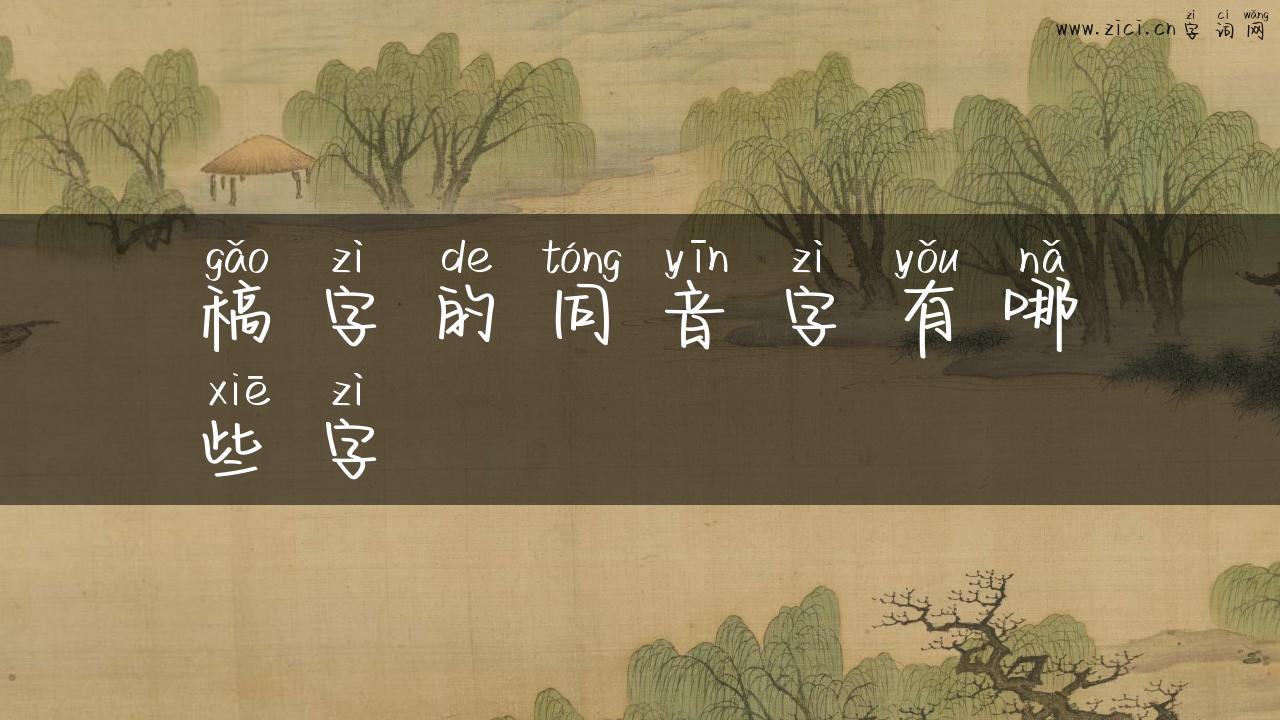 zì cí wǎng
www.zici.cn 字词网
gǎo zì de tóng yīn zì yǒu nǎ
稿字的同音字有哪
xiē zì
些字